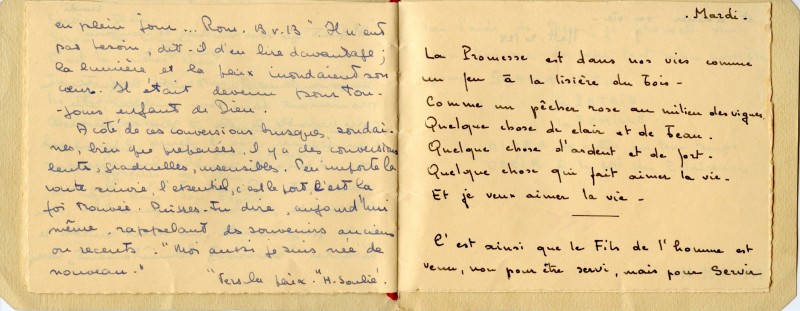 en plein jour... Rom. 13 v. 13". Il n'eut
pas besoin, dit-il d'en lire davantage ;
la lumière et la paix inondaient son
cœur. Il était devenu pour tou-
-jours enfant de Dieu.
A côté de ces conversions brusques, soudai-
nes, bien que préparées, il y a des conversions
lentes, graduelles, insensibles. Peu importe la
route suivie, l'essentiel, c'est le port, c'est la
foi trouvée. Puisses-tu dire, aujourd'hui
même, rappelant des souvenirs anciens
ou récents. "Moi aussi je suis née de
nouveau."
"Vers la paix." H. Soulié.
. Mardi .
La Promesse est dans nos vies comme
un feu à la lisière du bois -
Comme un pêcher rose au milieu des vignes.
Quelque chose de clair et de beau.
Quelque chose d'ardent et de fort.
Quelque chose qui fait aimer la vie -
Et je veux aimer la vie -
C'est ainsi que le Fils de l'homme est
venu, non pour être servi, mais pour Servir